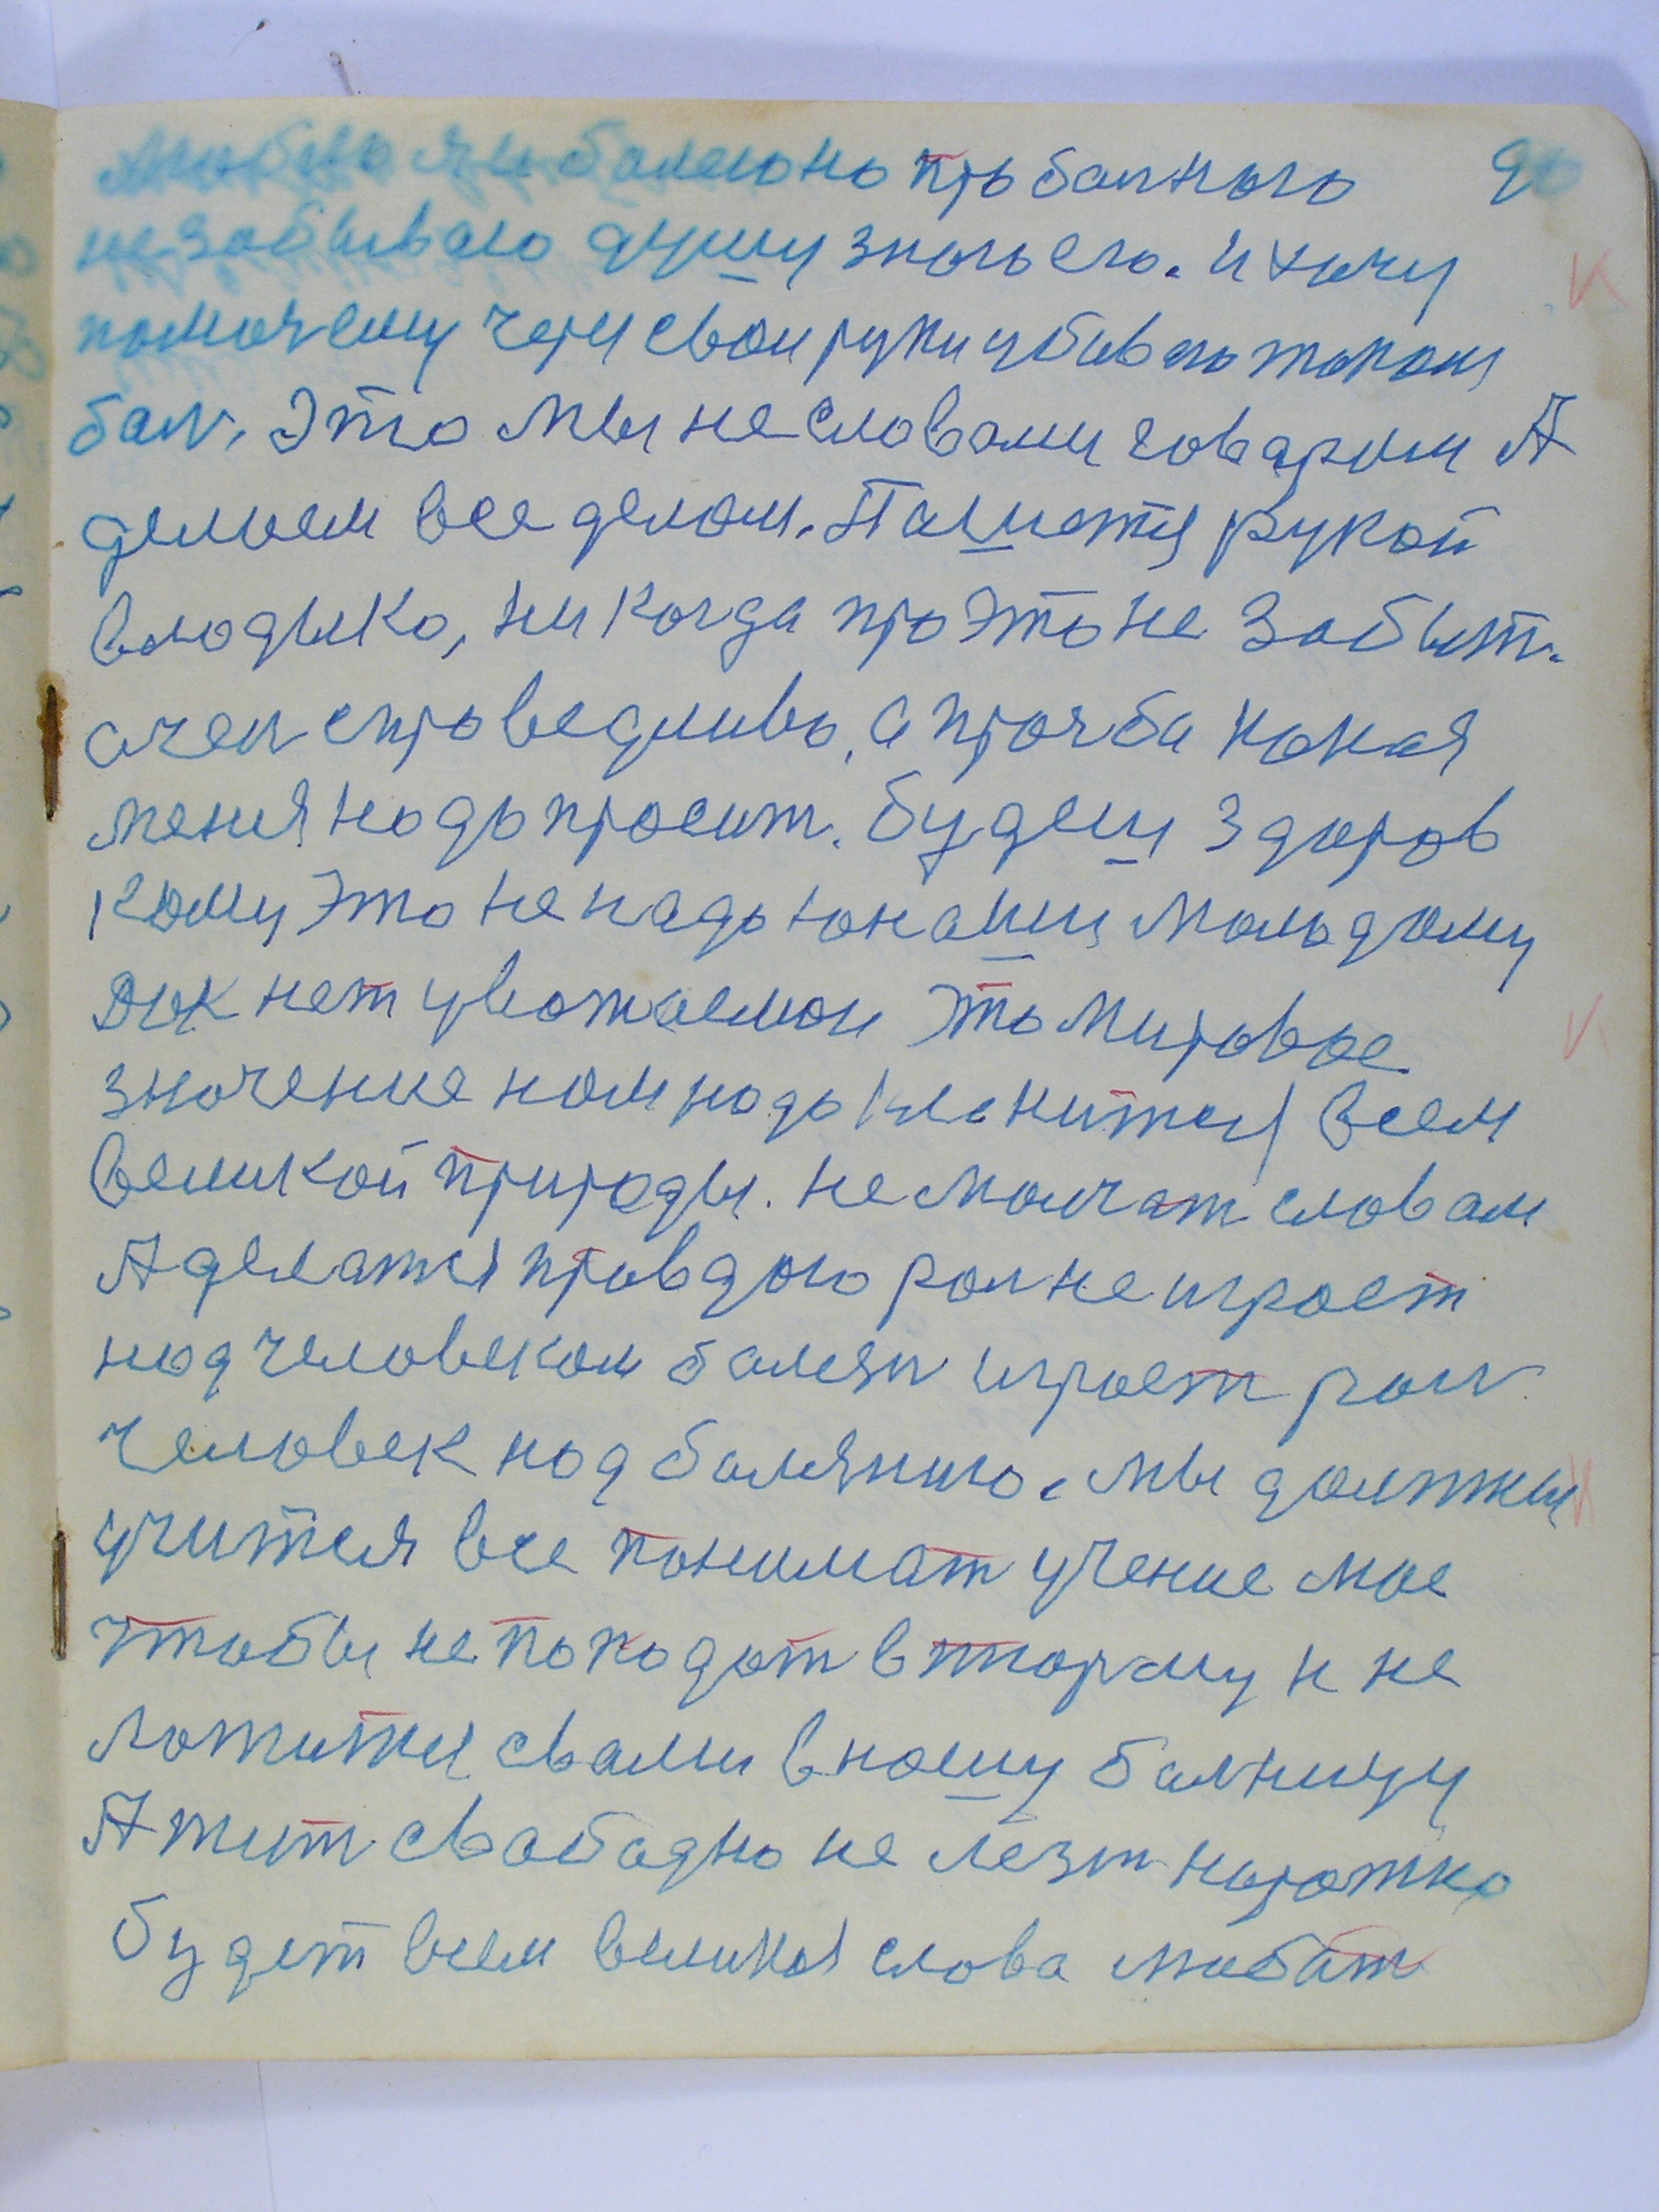 Люблю я и болею но про балного 90
не забываю душу знаю его. И хочу
помоч ему чери свои руки убиваю током
бал. Это мы не словами говарим А
делоем все делом. Памить рукой
Владыко, ни когда про это не забыт.
очен справедливо, а прочба кокая
меня надо просит. Будеш здоров
Кому это не надо юнаши моладому
дык нет уважаемои это мировое
значение нам надо кланится всем
великой природы. не молчат словам
А делатся правдою рол не играет
над человеком балезн играет рол
человек над балезнию. Мы должны
учится все понимат учение мое
чтобы не пападат в тюрму и не
ложится с вами в нашу балницу
А жит свабадно не лезт наражно
будет всем великая слова любит